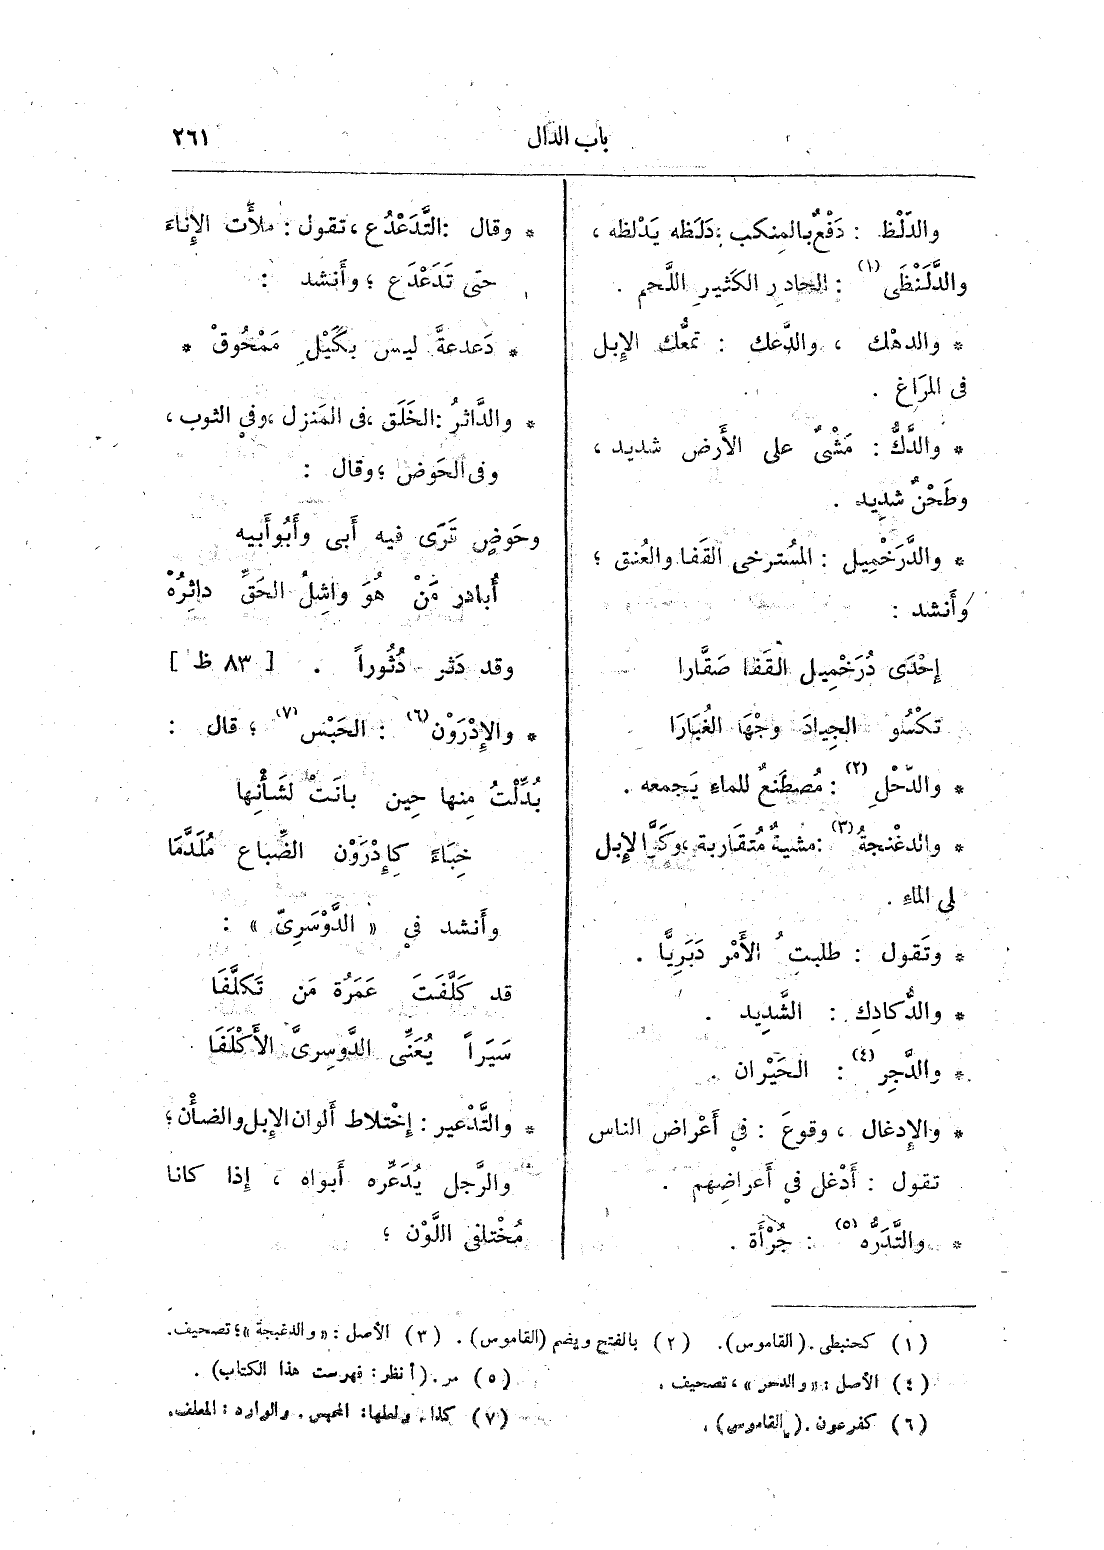 باب الدال
٢٦١
والدّلْظ : دَفْعٌ بالمِنكب ؛ دَلَظه يَدْلظه ،
والدَّلَنْظَى (١) : الحادِر الكَثيرِ اللَّحم .
* والدهْك ، والدَّعك : تمعُّك الإِبل
فى المَرَاغ .
* والدَّكُّ : مَشْىٌ على الأَرض شديد ،
وطَحْنٌ شديد .
* والدَّرَخْمِيل : المُسترخى القَفا والعُنق ؛
وأَنشد :
إِحْدَى دُرَخْمِيل القَفا صَقَّارا
تكْسُو الجِيادَ وجْهَا الغُبَارَا
* والدّحْل (٢) : مُصطَنعٌ للماء يَجمعه .
* والدغْنجةُ (٣) : مشيةٌ مُتقَاربة ، وكَرَّ الإِبل
لى الماء .
* وتَقول : طلبتُ الأَمْر دَبَرِيًّا .
* والدُّكادِك : الشَّدِيد .
* والدَّجِر (٤) : الحَيْران .
* والإِدغال ، وقوعَ : فى أَعْراض الناس
تقول : أَدْغل فى أَعراضِهم .
* والتَّدَرُّه (٥) : جُرْأَة .
* وقال : التَّدَعْدُع ، تقول : ملأَت الإِناءَ
حتى تَدَعْدَع ؛ وأَنشد :
* دَعدعةً ليس بكَيْلٍ مَمْحُوقْ *
* والدَّاثرُ : الخَلَق ، فى المَنزل ، وفى الثوب ،
وفى الحَوض ؛ وقال :
وحَوضٍ تَرَى فيه أَبى وأَبُو أَبيه
أُبادر مَنْ هُوَ واشِلُ الحَقِّ داثِرُهْ
وقد دَثر دُثُوراً . [ ٨٣ ظ ]
* والإِدْرَوْن (٦) : الحَبْس (٧) ؛ قال :
بُدِّلْتُ مِنها حِين بانَتْ لشَأْنِها
خِبَاءً كإِدْرَوْن الضِّباع مُلَدَّمَا
وأَنشد فى « الدَّوْسَرِىّ » :
قد كَلَّفَتَ عَمَرُة مَن تَكلَّفَا
سَيَراً يُعَنِّى الدَّوسِرىَّ الأَكْلَفَا
* والتَّدْعير : إِخْتلاط أَلوان الإِبل والضأْن ؛
والرَّجل يُدَعِّره أَبواه ، إذا كانا
مُخْتلفى اللَّوْن ؛
(١) كحنبطى . (القاموس). (٢) بالفتح ويضم (القاموس) . (٣) الأصل : « والدغبجة » ؛ تصحيف.
(٤) الأصل : « والدحر » ، تصحيف . (٥) مر . (أنظر : فهرست هذا الكتاب) .
(٦) كفرعون . (القاموس) . (٧) كذا. ولعلها: المحبس . والوارد : المعلف.